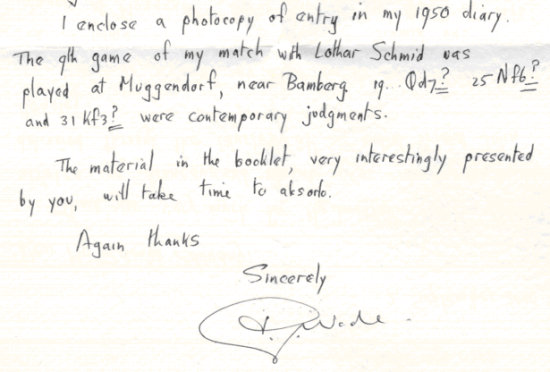 I enclose a photocopy of entry in my 1950 diary.
The 9th game of my match with Lothar Schmid was
played at Muggendorf, near Bamberg 19... Qd7? 25 Nf6?
and 31 Kf3? were contemporary judgments.
The material in the booklet, very interestingly presented
by you, will take time to absorb.
Again thanks
Sincerely
R. G. Wade.